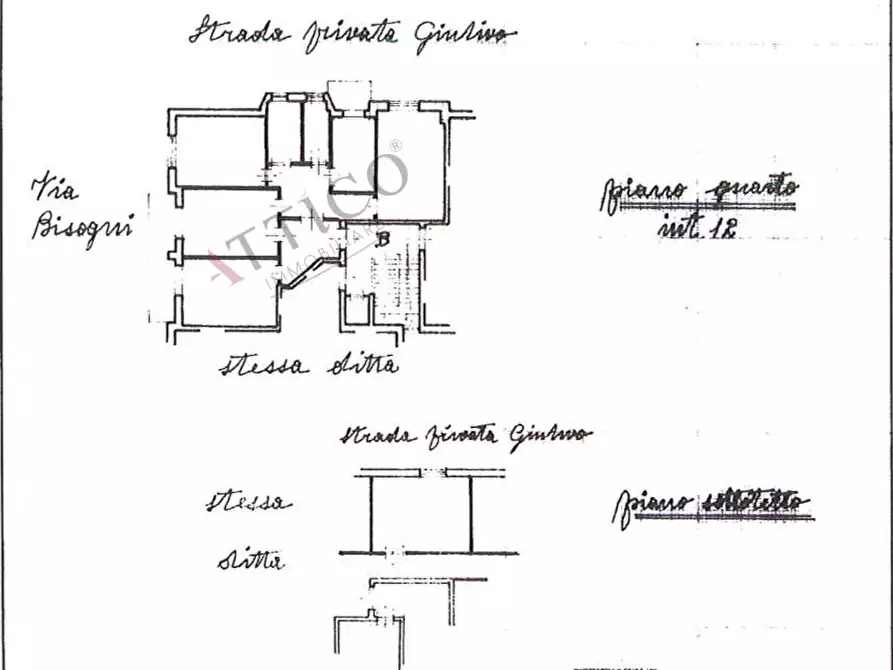 Strada privata Giulivo
Via
Bisogni
piano quarto
int. 12
ATTICO®
IMMOBILIARE
B
stessa ditta
Strada privata Giulivo
stessa
ditta
piano sottotetto